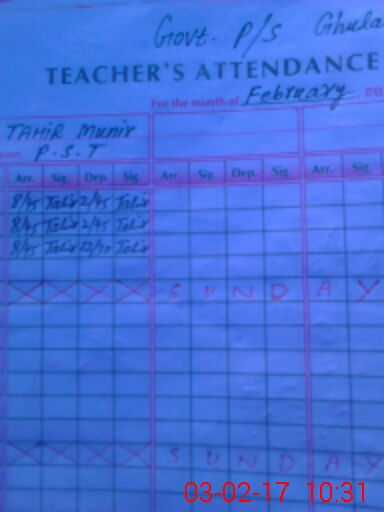 Govt. P/S Ghula
TEACHER'S ATTENDANCE
For the month of February 20
TAHIR Munir
P.S.T
Arr. Sig. Dep. Sig. Arr. Sig. Dep. Sig. Arr. Sig.
8/45 Tahir 2/45 Tahir
8/45 Tahir 2/45 Tahir
8/45 Tahir 12/30 Tahir
S U N D A Y
S U N D A Y
03-02-17 10:31